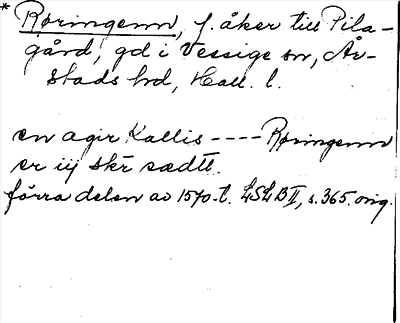 * Røringenn, f. åker till Pila-
gård, gd i Vessige sn, År-
stads hd, Hall. l.
en agir Kallis ---- Røringenn
er iij skr sædtt.
förra delen av 1570-t. LSLB II, s. 365. orig.